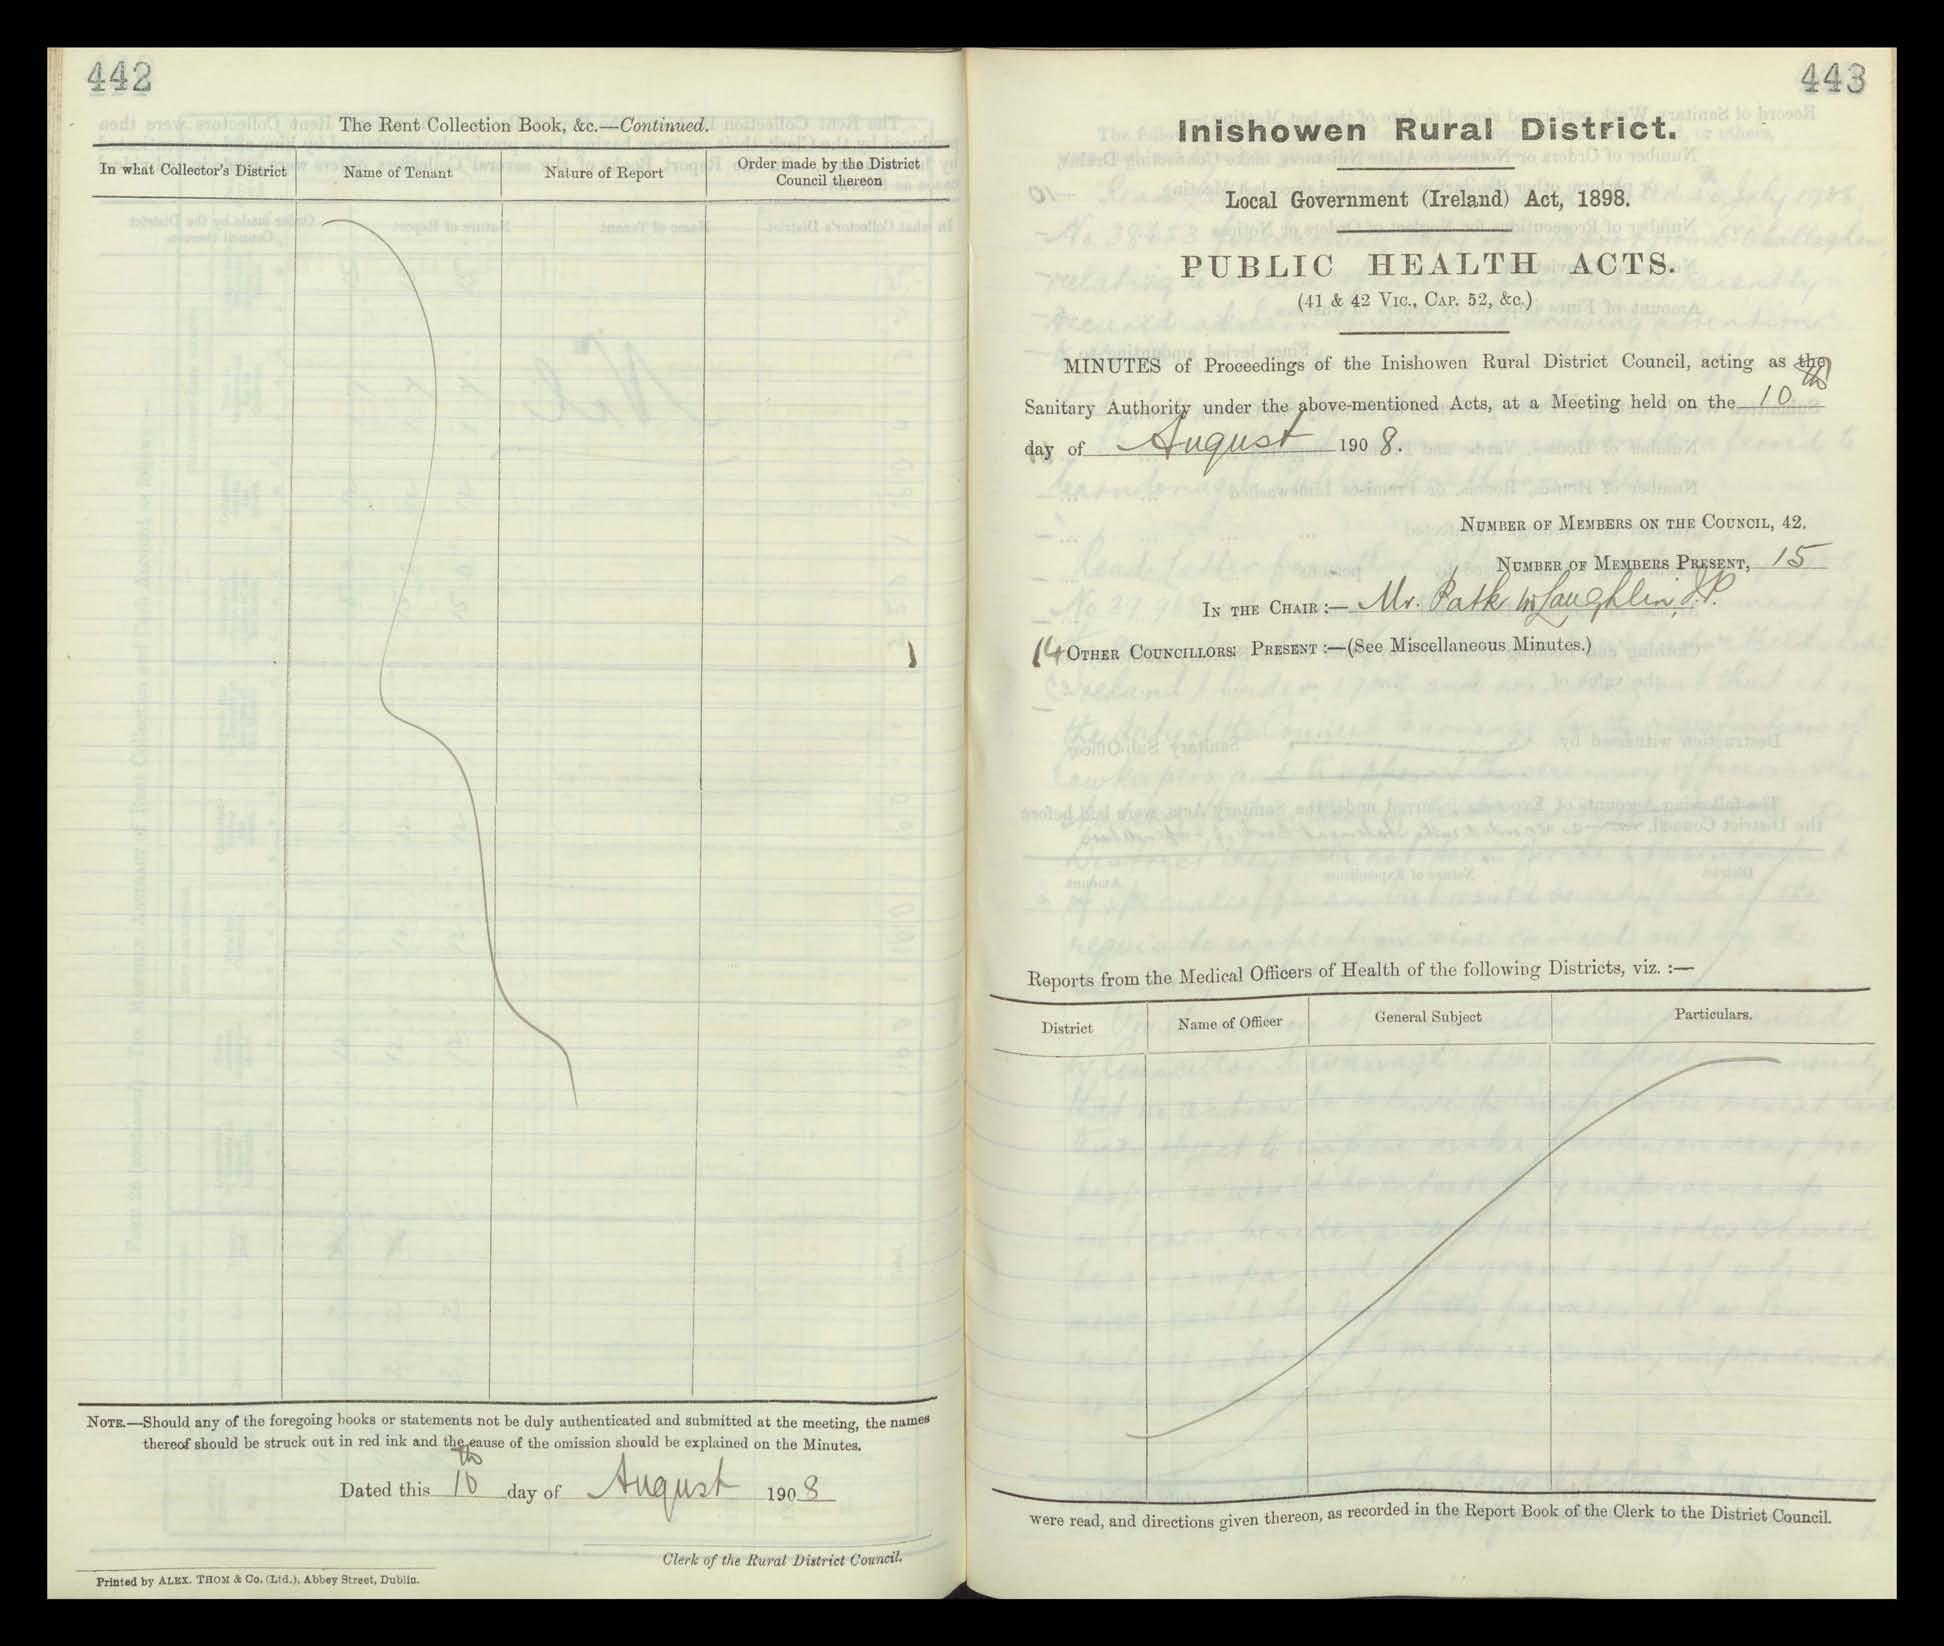 442
The Rent Collection Book, &c.—Continued.
In what Collector's District
Name of Tenant
Nature of Report
Order made by the District
Council thereon
NOTE.—Should any of the foregoing books or statements not be duly authenticated and submitted at the meeting, the names
thereof should be struck out in red ink and the cause of the omission should be explained on the Minutes.
Dated this 10th day of August 1908
Clerk of the Rural District Council.
Printed by ALEX. THOM & Co. (Ltd.), Abbey Street, Dublin.
443
Inishowen Rural District.
Local Government (Ireland) Act, 1898.
PUBLIC HEALTH ACTS.
(41 & 42 VIC., CAP. 52, &c.)
MINUTES of Proceedings of the Inishowen Rural District Council, acting as the
Sanitary Authority under the above-mentioned Acts, at a Meeting held on the 10th
day of August 1908.
NUMBER OF MEMBERS ON THE COUNCIL, 42.
NUMBER OF MEMBERS PRESENT, 15
IN THE CHAIR :— Mr. Patk McLaughlin, J.P.
14 OTHER COUNCILLORS PRESENT :—(See Miscellaneous Minutes.)
Reports from the Medical Officers of Health of the following Districts, viz. :—
District
Name of Officer
General Subject
Particulars.
were read, and directions given thereon, as recorded in the Report Book of the Clerk to the District Council.